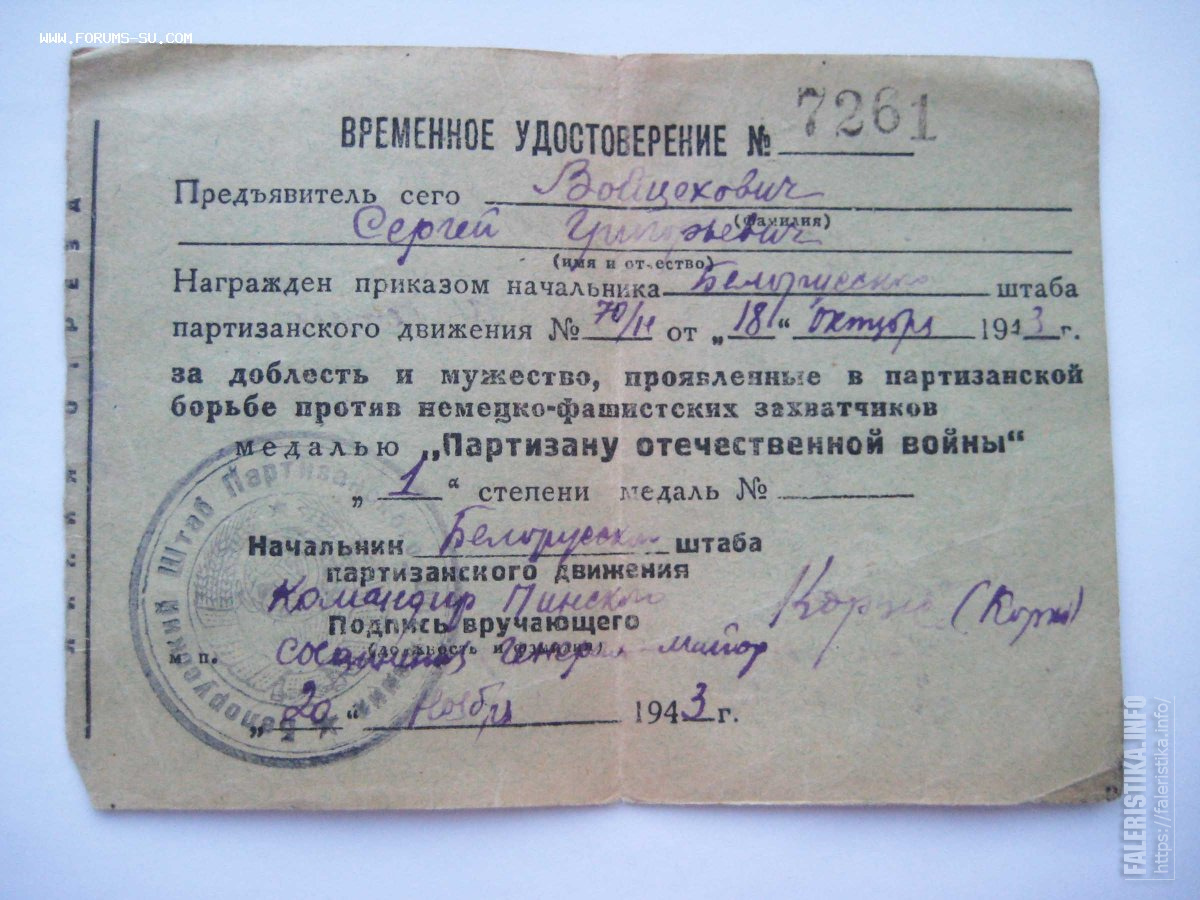 WWW.FORUMS-SU.COM
ВРЕМЕННОЕ УДОСТОВЕРЕНИЕ № 7261
Предъявитель сего Войцехович
(фамилия)
Сергей Григорьевич
(имя и от-ество)
Награжден приказом начальника Белорусского штаба
партизанского движения № 70/н от „18“ октября 1943 г.
за доблесть и мужество, проявленные в партизанской
борьбе против немецко-фашистских захватчиков
медалью „Партизану отечественной войны“
„1“ степени медаль №
Начальник Белорусского штаба
партизанского движения
Командир Пинского Корж (Корж)
Подпись вручающего
соединения Генерал-майор
(должность и фамилия)
м п.
„20“ Ноября 1943 г.
Белорусский Штаб Партизанско
ЛИНИЯ ОТРЕЗА
FALERISTIKA.INFO
https://faleristika.info/